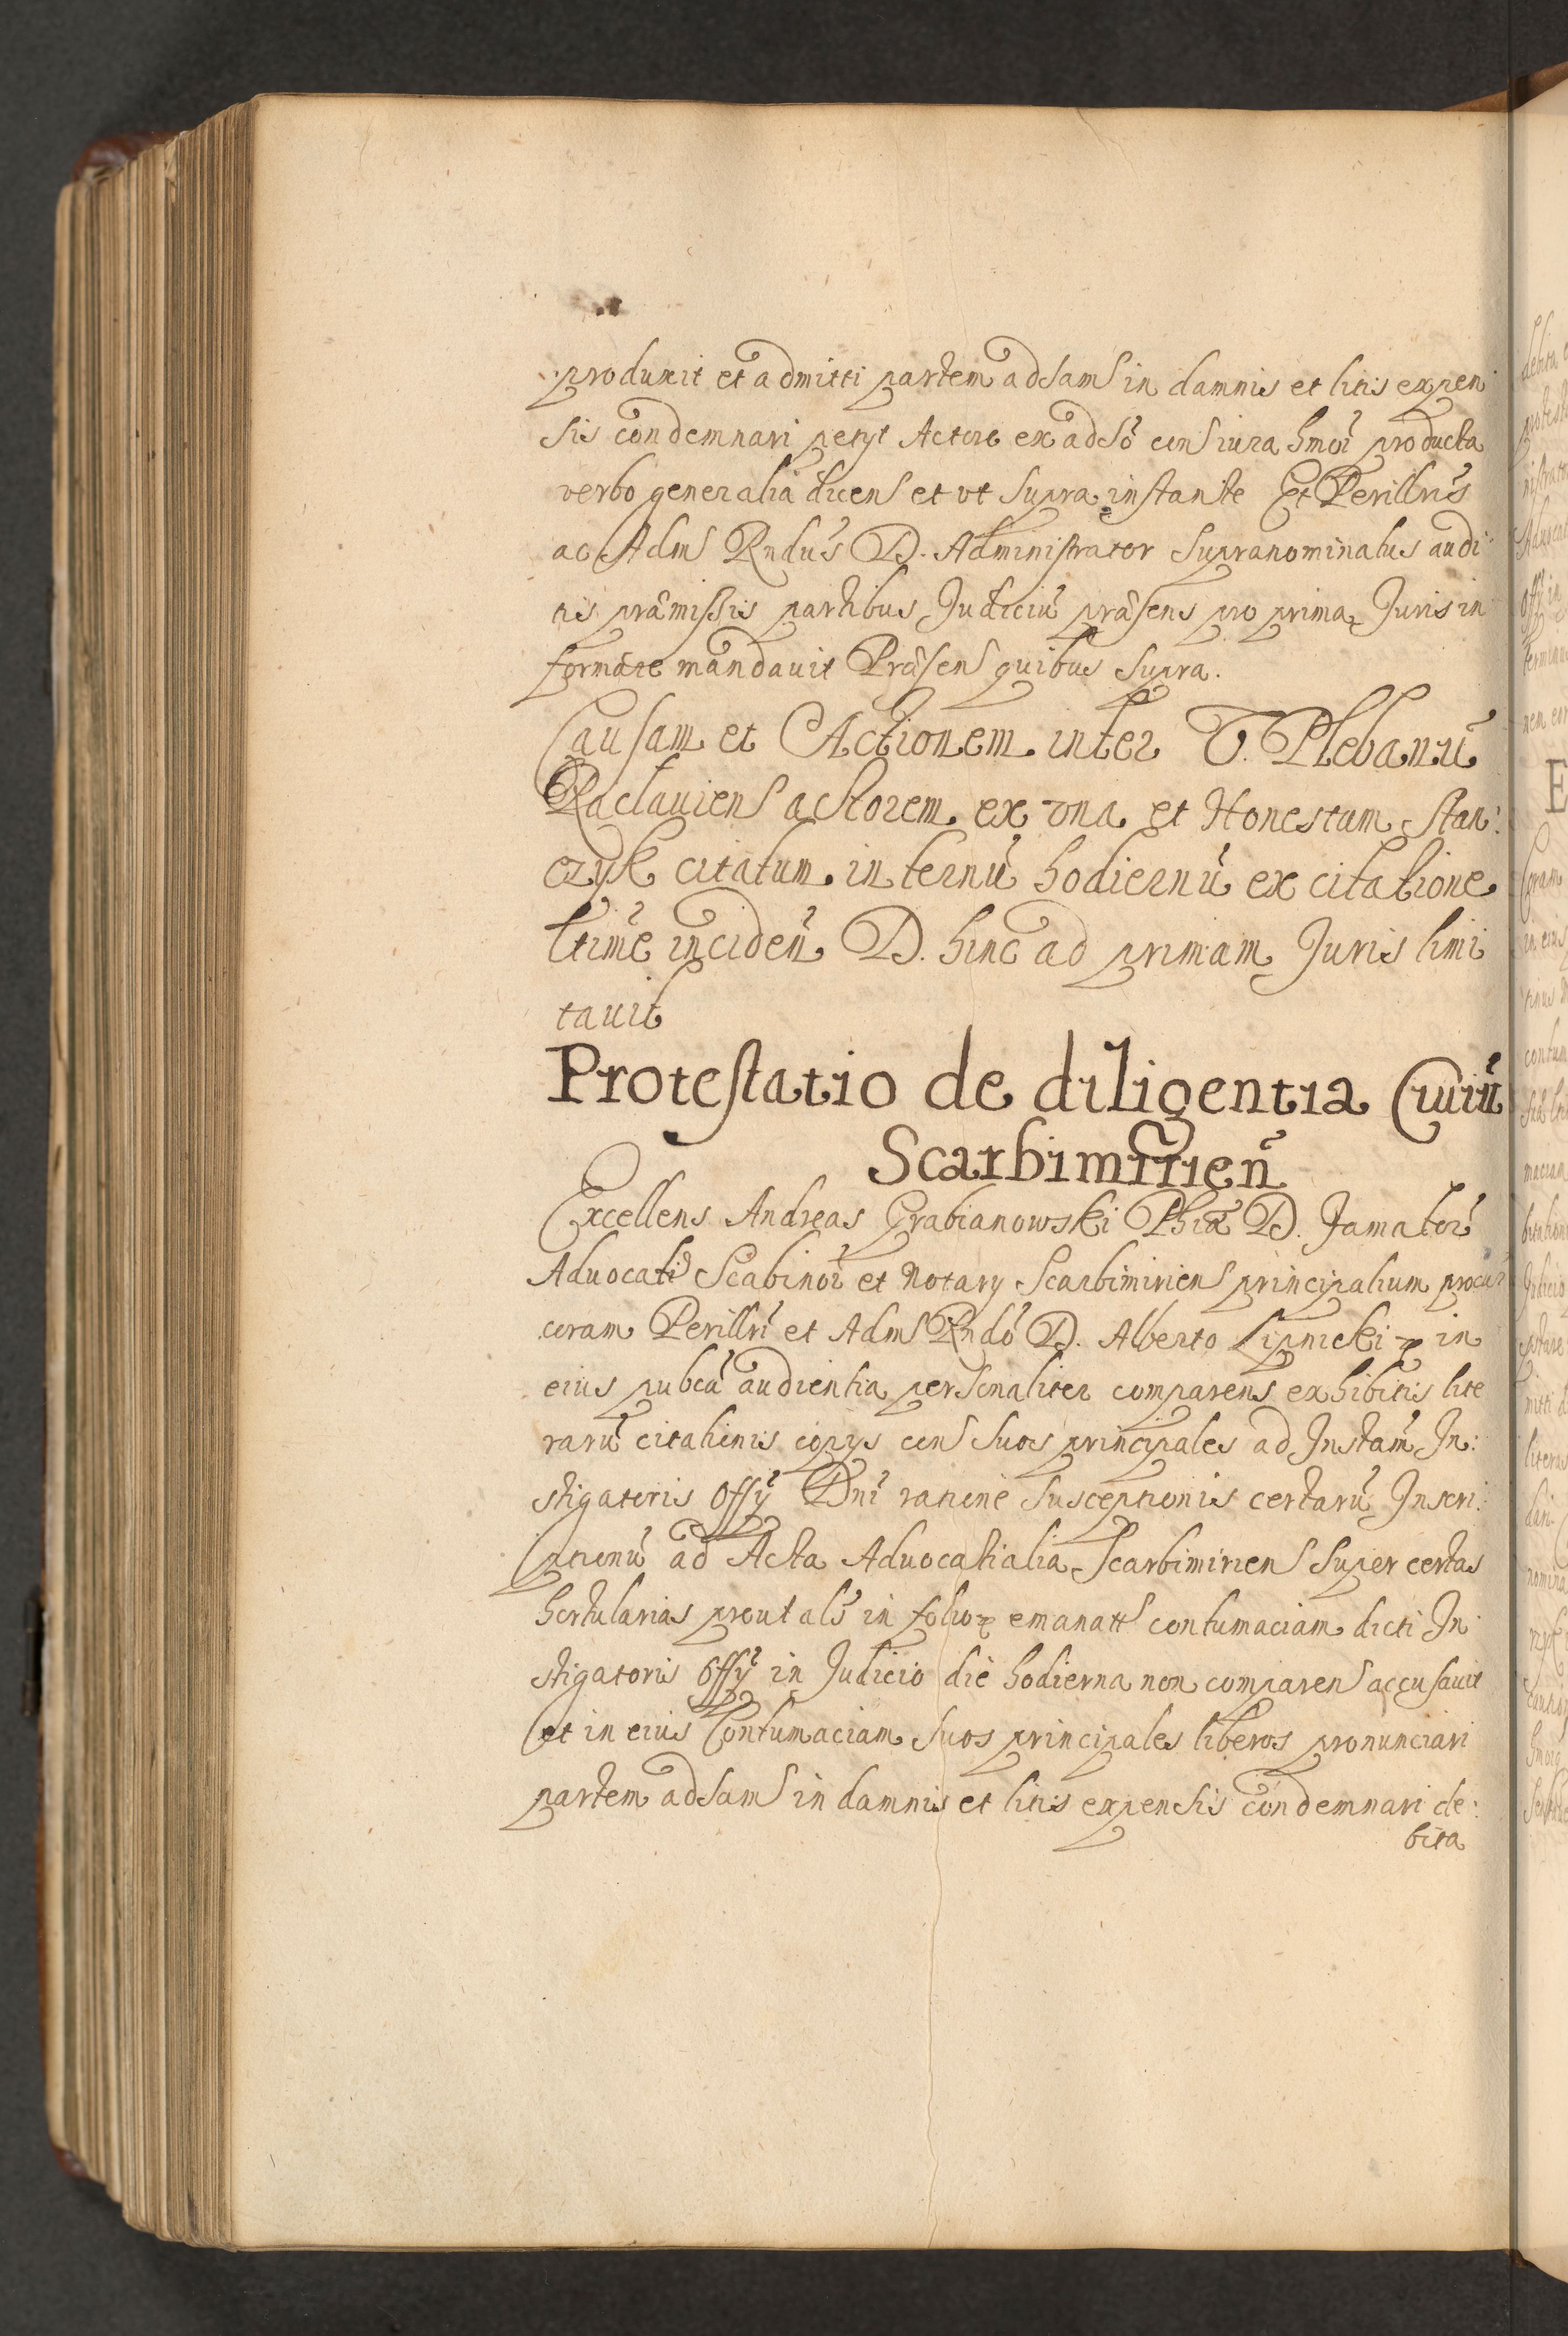 produxit et admitti partem adsam in damnis et litis expen
sis condemnari petyt Actore ex adso con iura hmoi producta
verbo generalia dicen et ut supra instante Et Perillris
ac Adm Rndus D. Administrator supranominatus audi
tis præmissis partibus Judiciu præsens pro prima Juris in
formare mandavit Præsen quibus supra.
Causam et Actionem inter V. Plebanu
Raclavien actorem ex una et Honestum Stan:
czyk citatum in ternu hodiernu ex citatione
ltime inciden D. hinc ad primam Juris limi
tavit
Protestatio de diligentia Civiu
Scarbimirien
Excellens Andreas Grabianowski Phiæ D. Famator
Advocati Scabinor et Notary Scarbimirien principalium procur
coram Perillri et Adm Rndo D. Alberto Lipnicki in
eius pubca audientia personaliter comparens exhibitis lite
raru citationis copys con suos principales ad Instam In:
stigatoris Offy Dni ratione susceptionis certaru Inscri:
ptionu ad Acta Advocatialia Scarbimirien super certas
hortularias prout als in folio emanatt contumaciam dicti In
stigatoris Offy in Judicio die hodierna non comparen accusavit
et in eius Contumaciam suos principales liberos pronunciari
partem adsam in damnis et litis expensis condemnari de:
bita